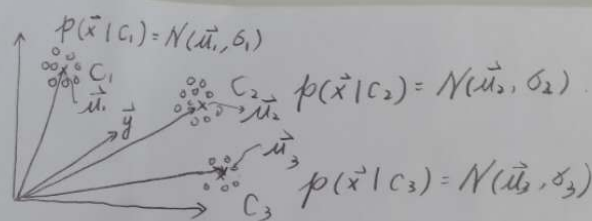 p(x⃗|C₁) = N(μ⃗₁, σ₁)
C₁
μ⃗₁
y⃗
C₂
μ⃗₂
p(x⃗|C₂) = N(μ⃗₂, σ₂)
μ⃗₃
C₃
p(x⃗|C₃) = N(μ⃗₃, σ₃)